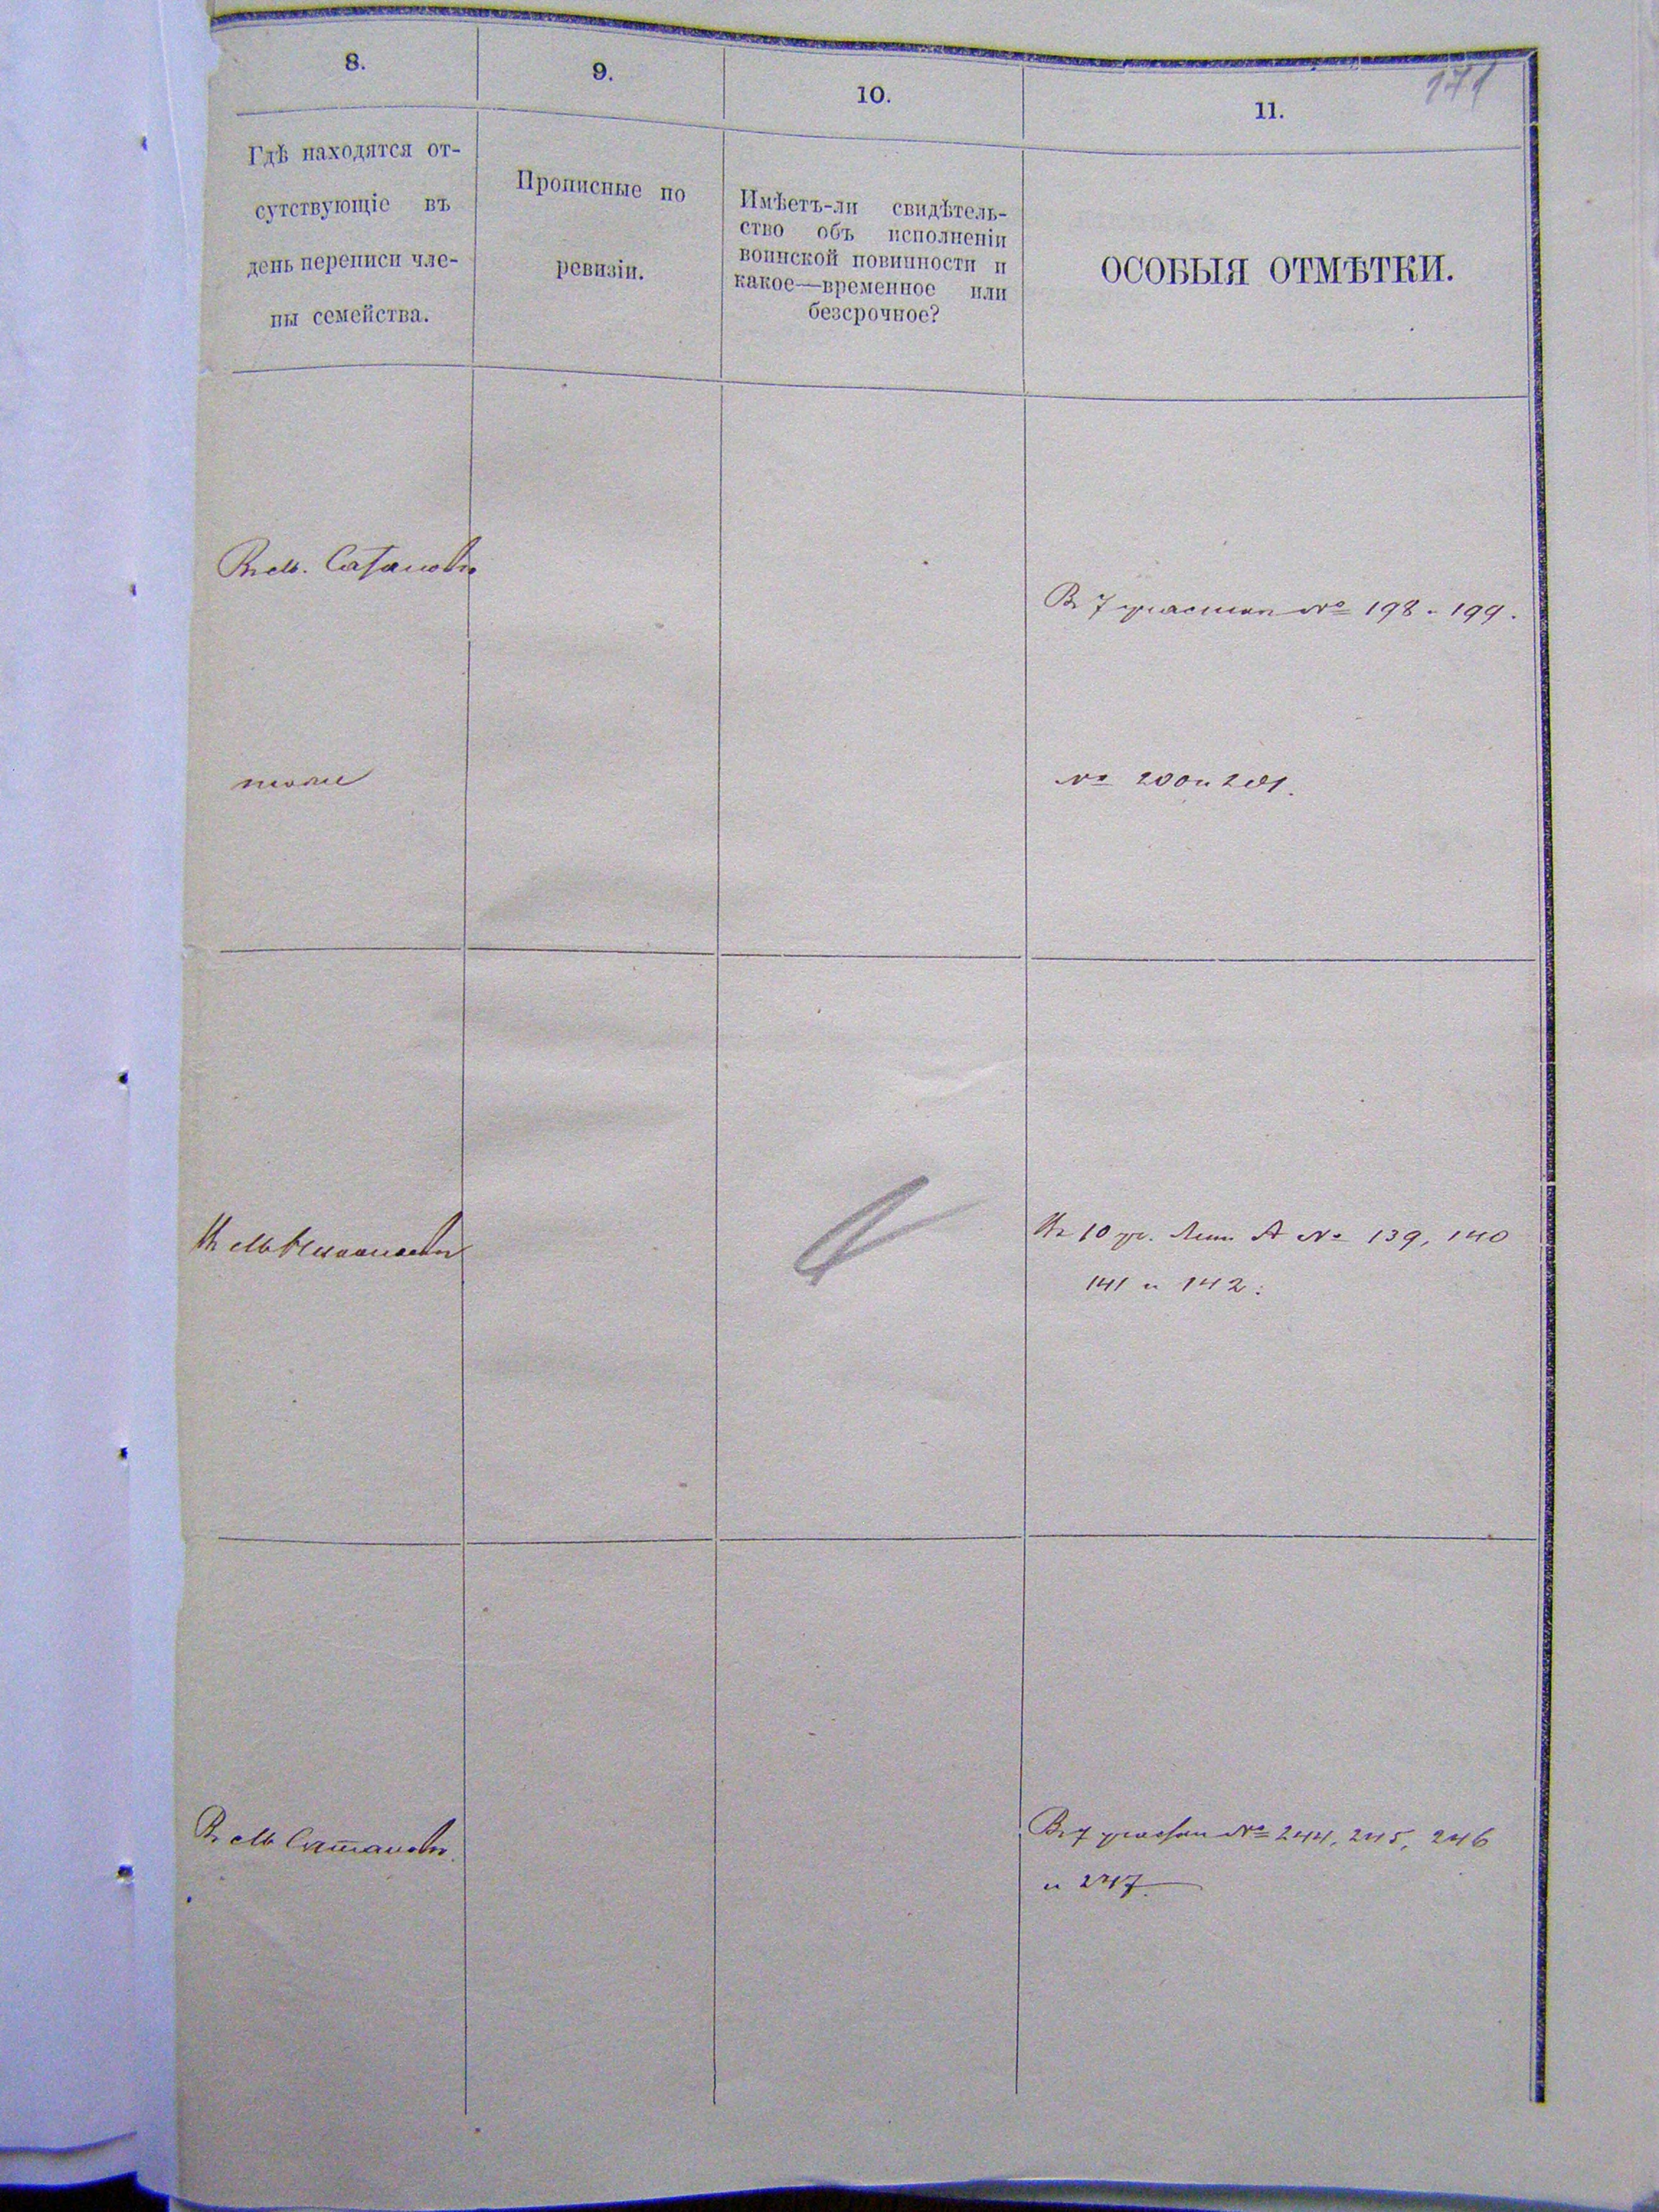 171
8.
9.
10.
11.
Гдѣ находятся от-
сутствующіе въ
день переписи чле-
ны семейства.
Прописные по
ревизіи.
Имѣетъ-ли свидѣтель-
ство объ исполненіи
воинской повинности и
какое—временное или
безсрочное?
ОСОБЫЯ ОТМѢТКИ.
Въ м. Сатановѣ
Въ 7 участкѣ № 198 - 199.
тоже
№ 200 и 201.
Въ м.
Въ 10 уч. Лит. А № 139, 140
141 и 142.
Въ м. Сатановѣ.
Въ 7 участкѣ № 244, 245, 246
и 247.